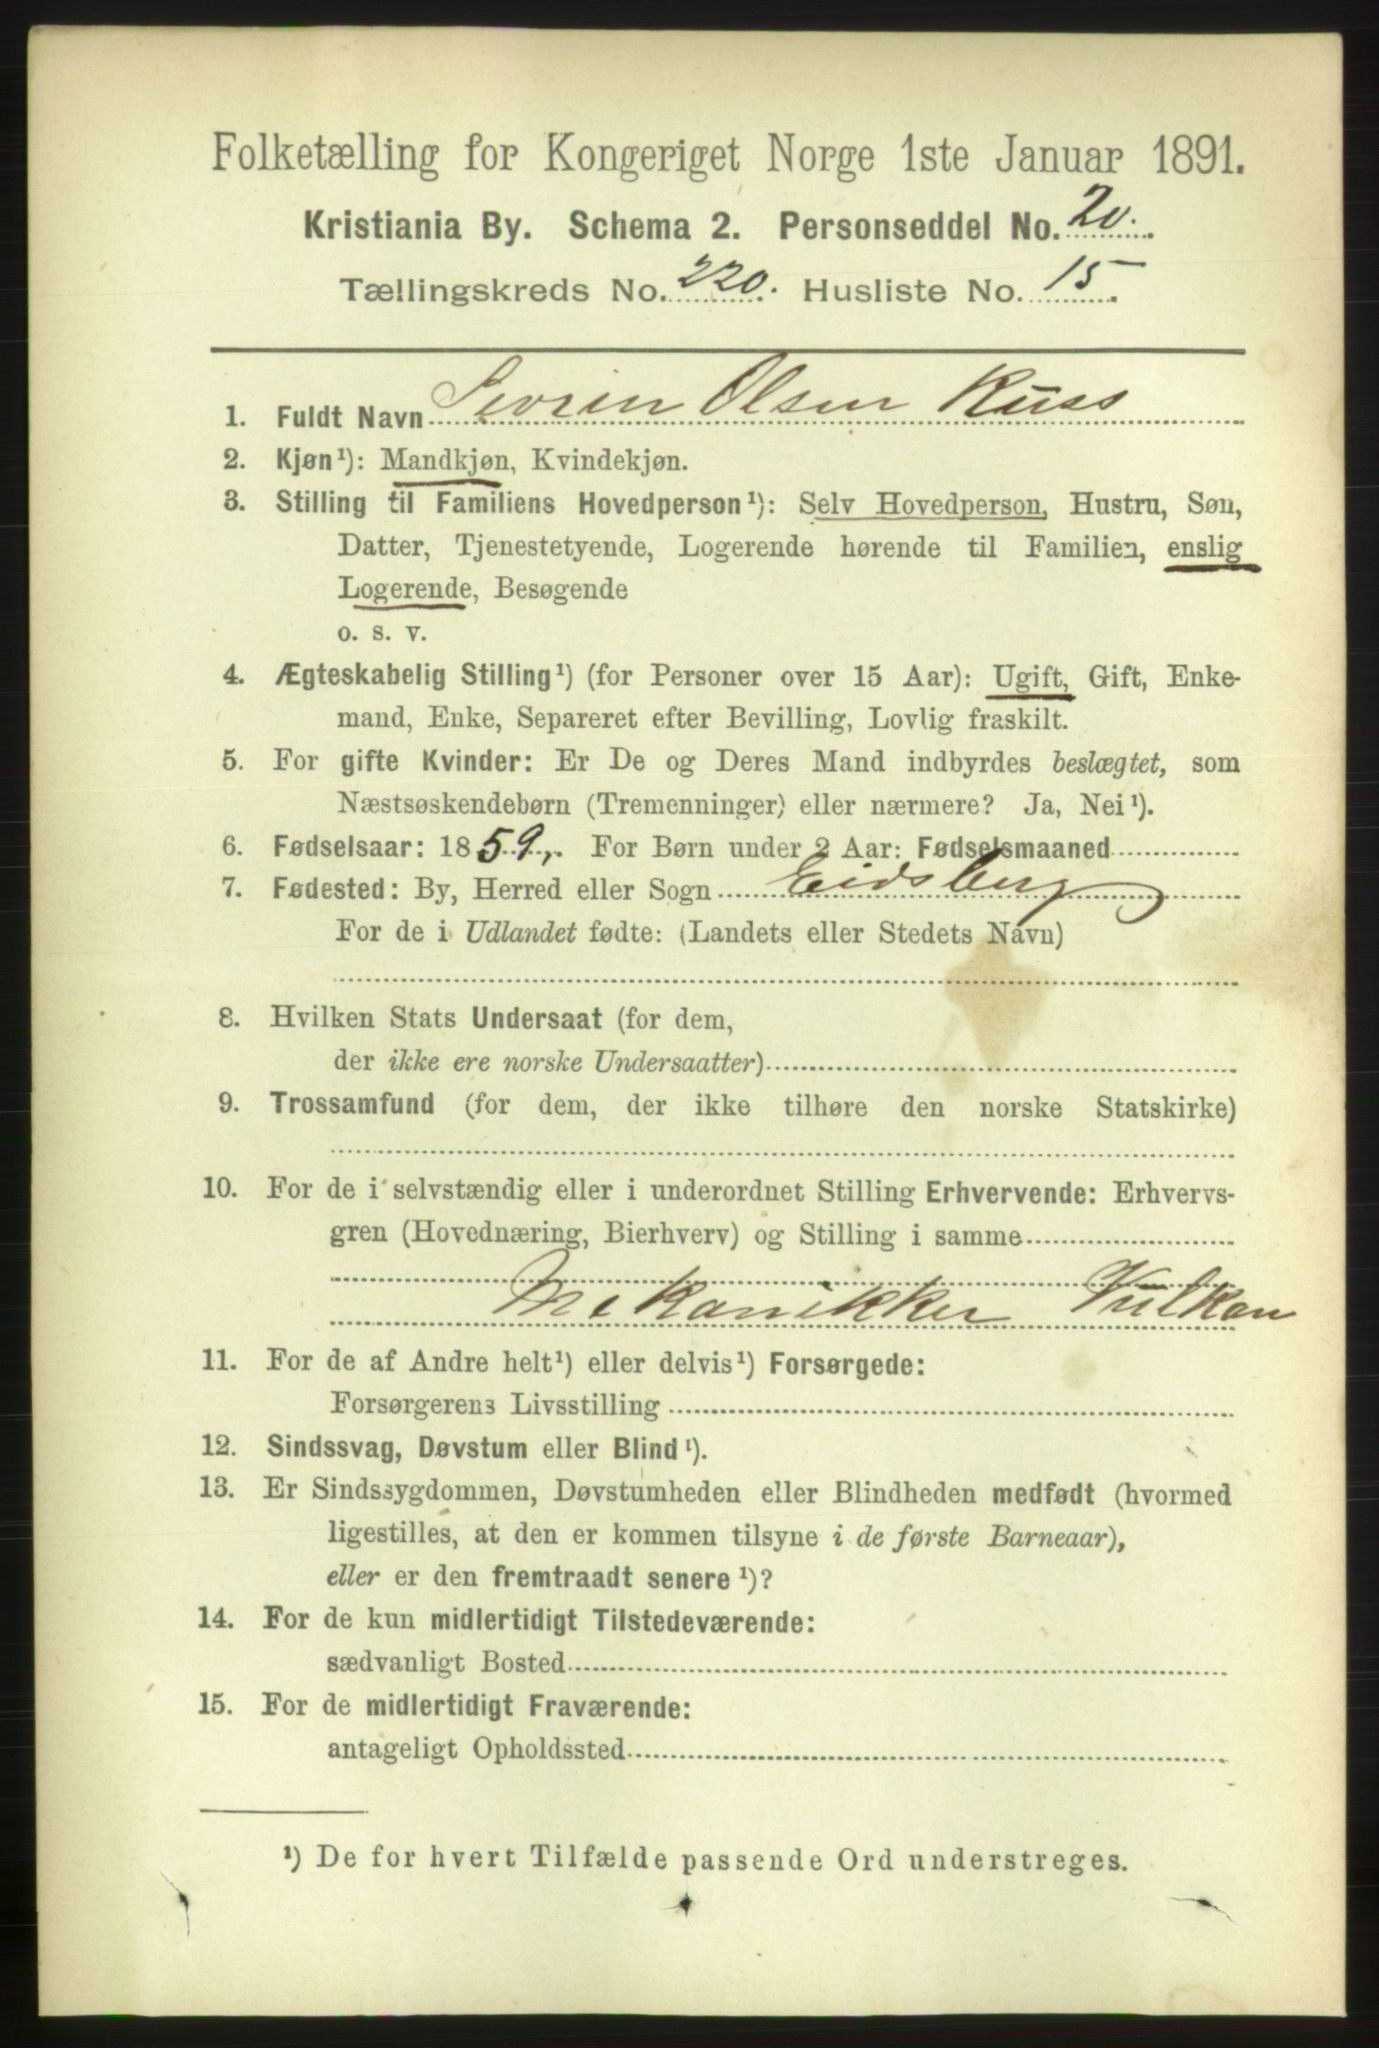 Folketælling for Kongeriget Norge 1ste Januar 1891.
Kristiania By. Schema 2. Personseddel No. 20.
Tællingskreds No. 220. Husliste No. 15.
1. Fuldt Navn Sevrin Olsen Russ
2. Kjøn¹): Mandkjøn, Kvindekjøn.
3. Stilling til Familiens Hovedperson¹): Selv Hovedperson, Hustru, Søn,
Datter, Tjenestetyende, Logerende hørende til Familien, enslig
Logerende, Besøgende
o. s. v.
4. Ægteskabelig Stilling¹) (for Personer over 15 Aar): Ugift, Gift, Enke-
mand, Enke, Separeret efter Bevilling, Lovlig fraskilt.
5. For gifte Kvinder: Er De og Deres Mand indbyrdes beslægtet, som
Næstsøskendebørn (Tremenninger) eller nærmere? Ja, Nei¹).
6. Fødselsaar: 1859,. For Børn under 2 Aar: Fødselsmaaned
7. Fødested: By, Herred eller Sogn Eidsberg
For de i Udlandet fødte: (Landets eller Stedets Navn)
8. Hvilken Stats Undersaat (for dem,
der ikke ere norske Undersaatter)
9. Trossamfund (for dem, der ikke tilhøre den norske Statskirke)
10. For de i selvstændig eller i underordnet Stilling Erhvervende: Erhvervs-
gren (Hovednæring, Bierhverv) og Stilling i samme
Mekanikker Vulkan
11. For de af Andre helt¹) eller delvis¹) Forsørgede:
Forsørgerens Livsstilling
12. Sindssvag, Døvstum eller Blind¹).
13. Er Sindssygdommen, Døvstumheden eller Blindheden medfødt (hvormed
ligestilles, at den er kommen tilsyne i de første Barneaar),
eller er den fremtraadt senere¹)?
14. For de kun midlertidigt Tilstedeværende:
sædvanligt Bosted
15. For de midlertidigt Fraværende:
antageligt Opholdssted
¹) De for hvert Tilfælde passende Ord understreges.